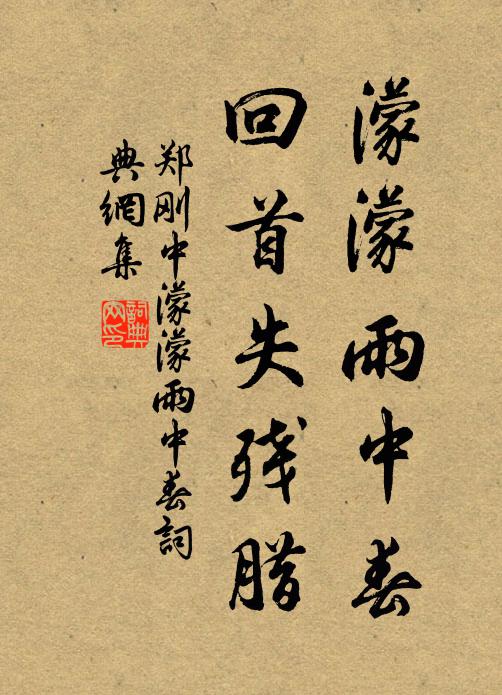 濛濛雨中春
回首失残腊
郑刚中濛濛雨中春詞
典網集
詞典网印